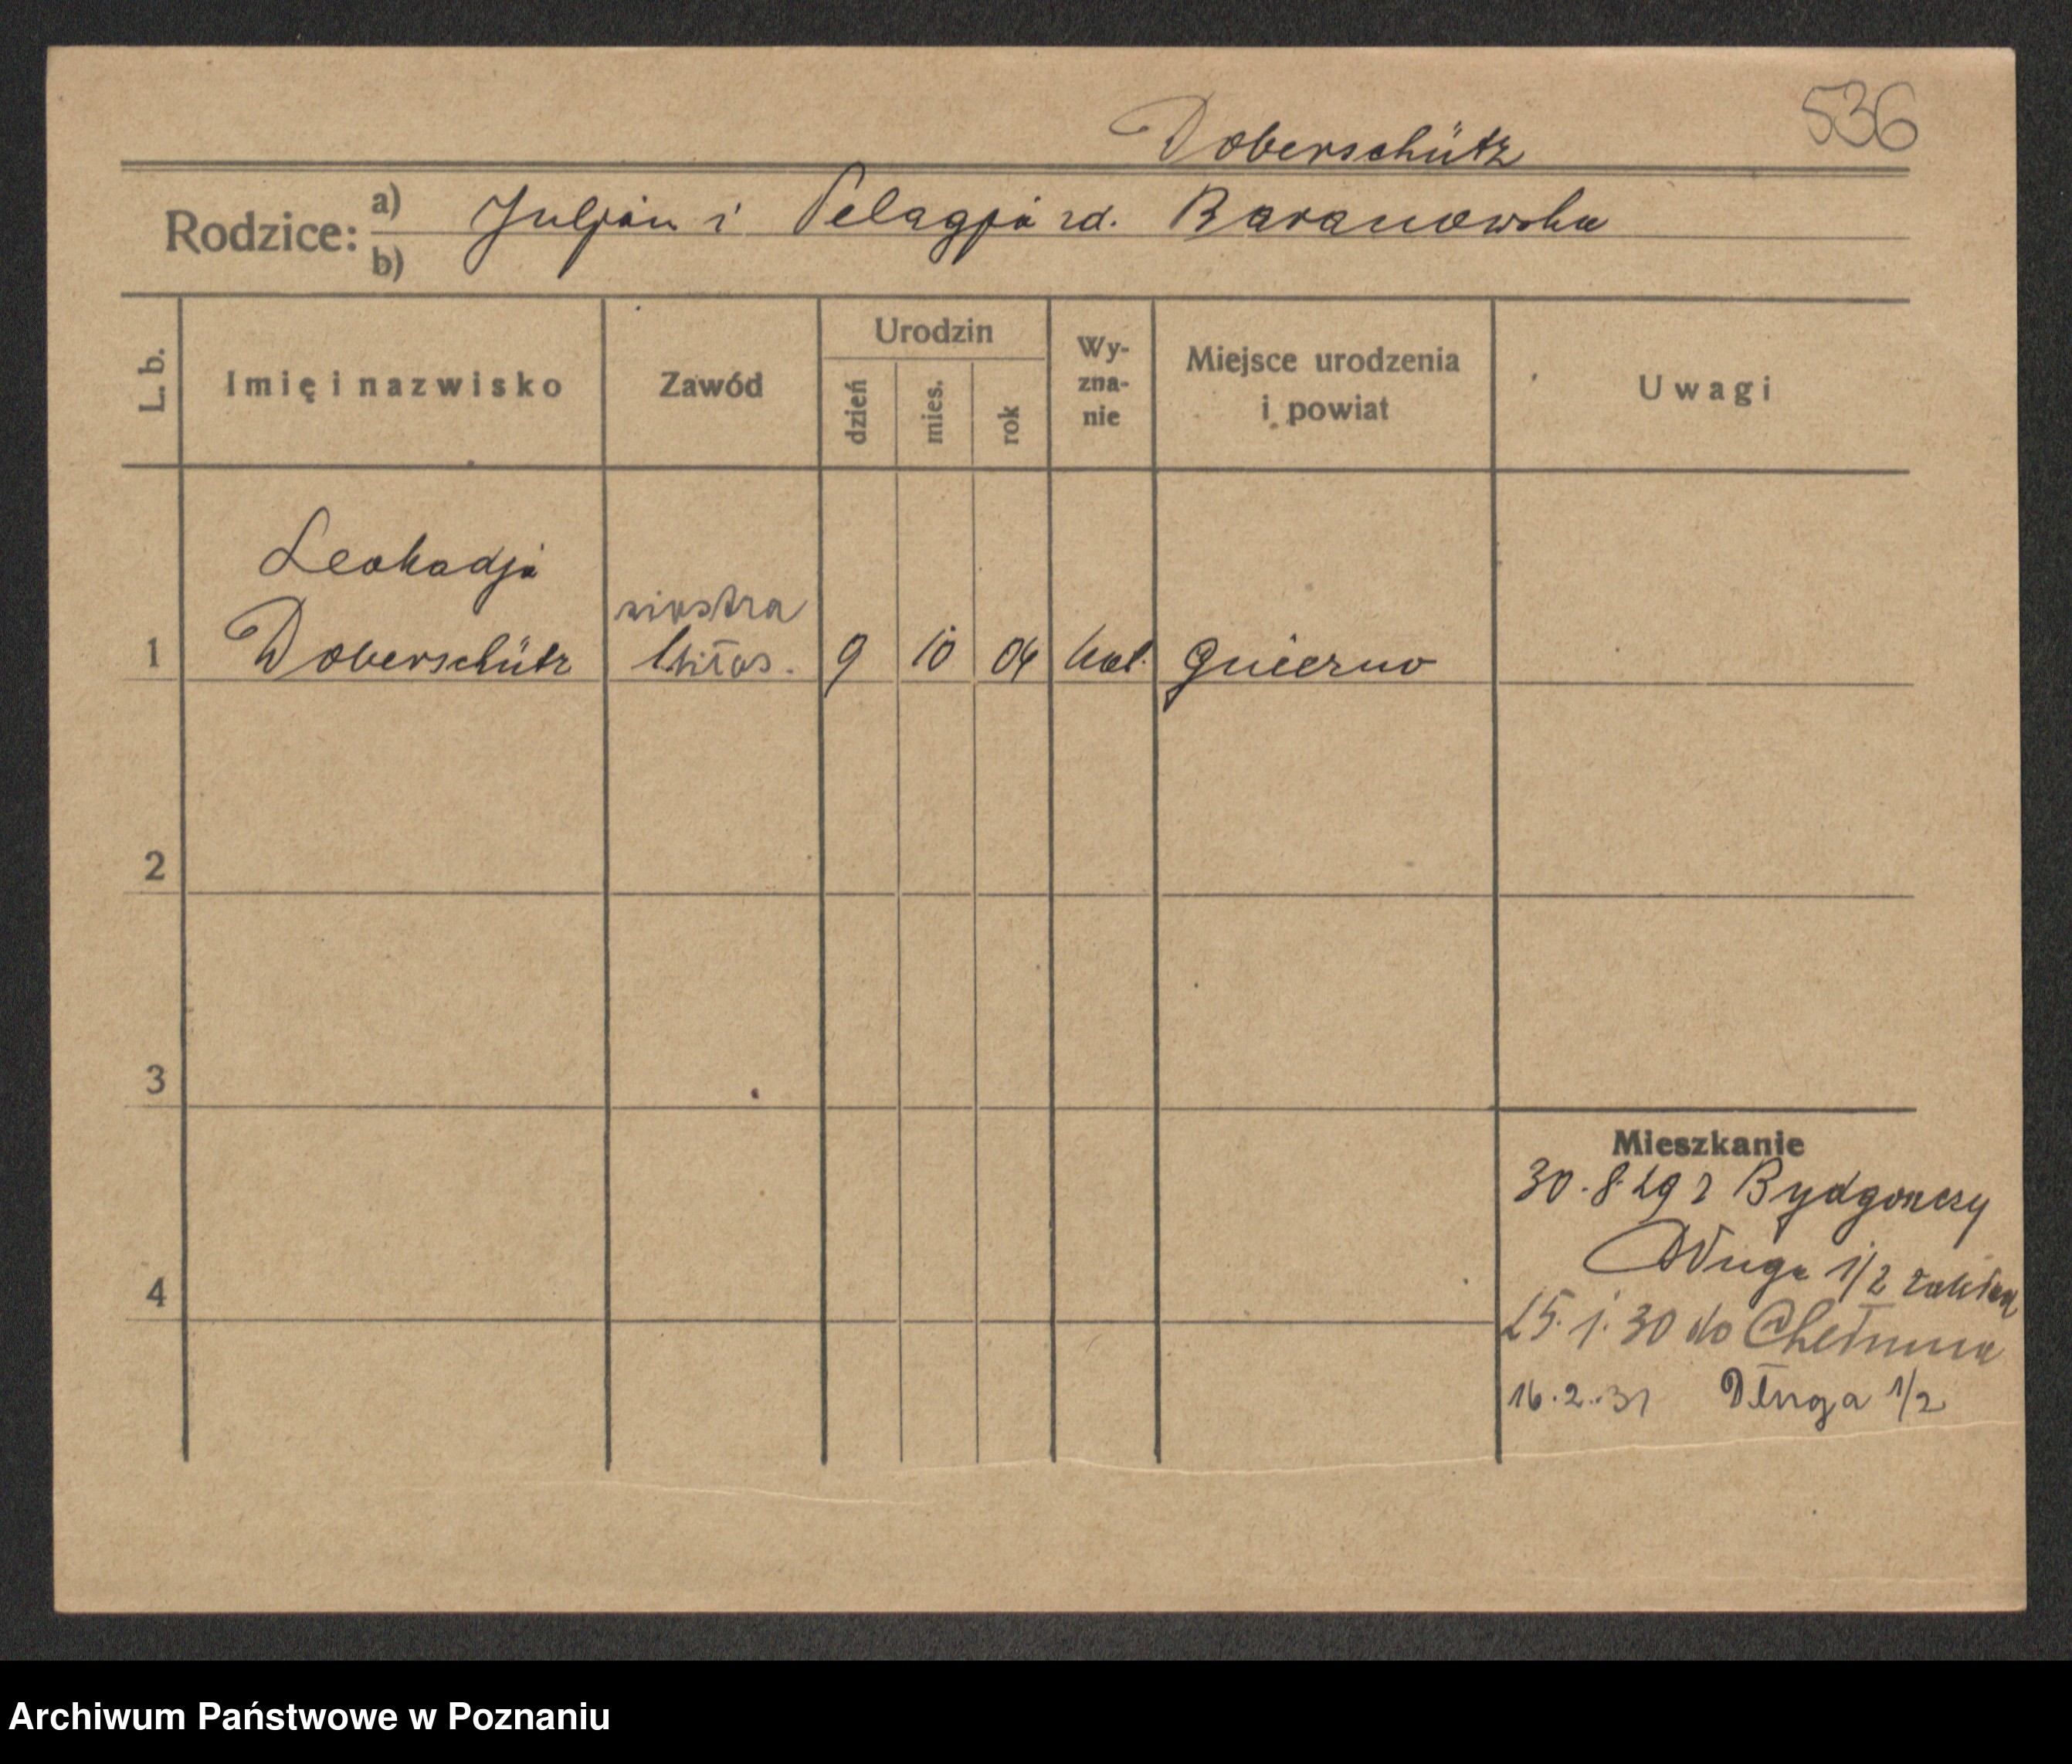 536
Doberschütz
Rodzice: a) Juljan i Pelagja zd. Baranowska
b)
L. b.
Imię i nazwisko
Zawód
Urodzin
dzień
mies.
rok
Wy-
zna-
nie
Miejsce urodzenia
i powiat
Uwagi
Leokadja
siostra
1 Doberschütz miłos. 9 10 04 kat. Gniezno
2
3
Mieszkanie
30.8.29 z Bydgoszczy
Długa 1/2
4
25.1.30 do Chełmna
16.2.31 Długa 1/2
Archiwum Państwowe w Poznaniu